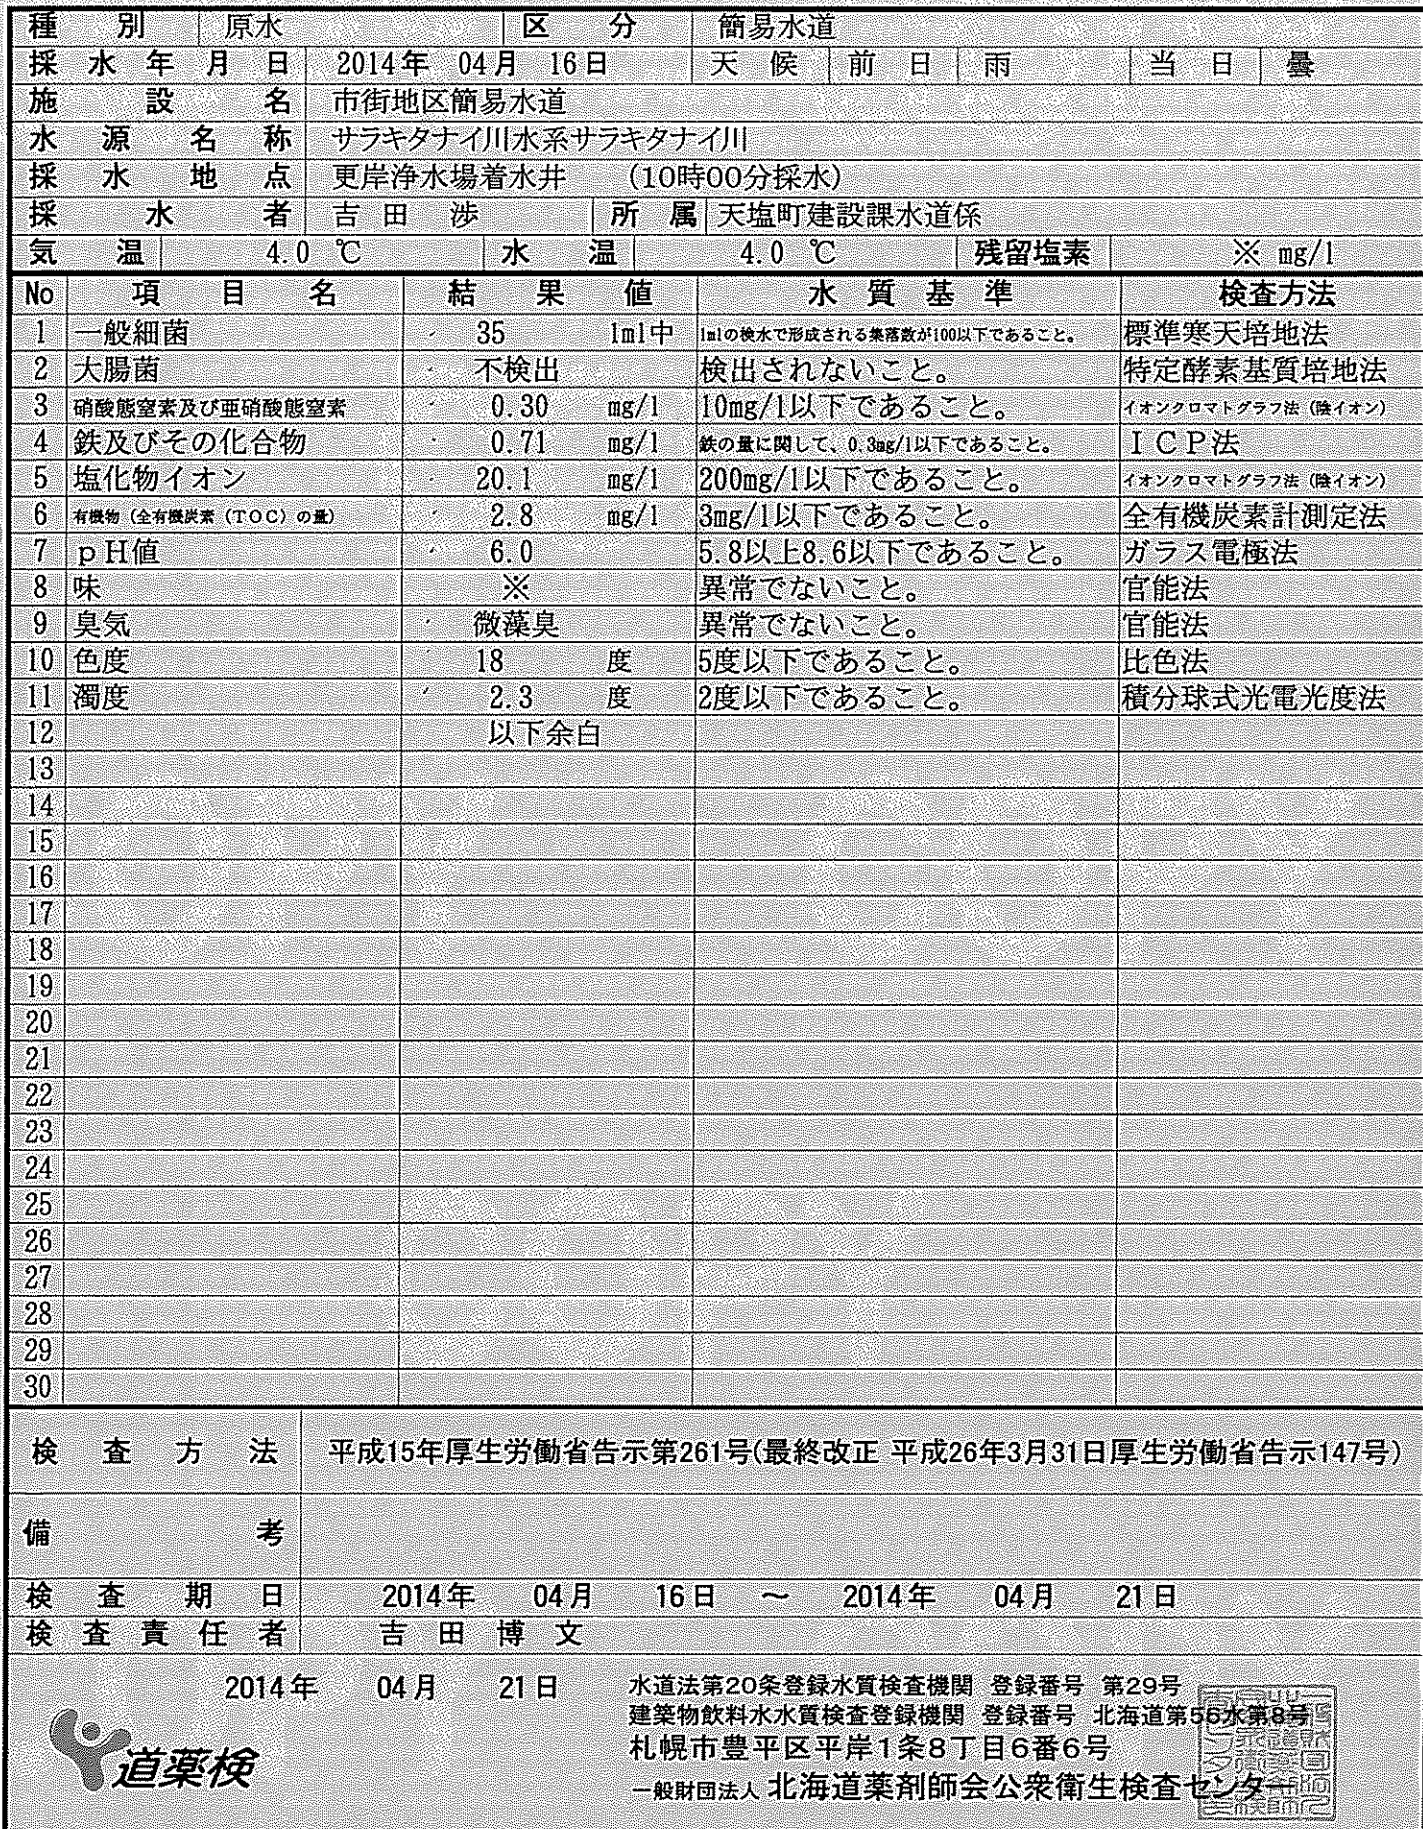 種別 原水 区分 簡易水道
採水年月日 2014年 04月 16日 天候 前日 雨 当日 曇
施設名 市街地区簡易水道
水源名称 サラキタナイ川水系サラキタナイ川
採水地点 更岸浄水場着水井 (10時00分採水)
採水者 吉田 渉 所属 天塩町建設課水道係
気温 4.0 ℃ 水温 4.0 ℃ 残留塩素 ※ mg/l
No 項目名 結果値 水質基準 検査方法
1 一般細菌 35 1ml中 1mlの検水で形成される集落数が100以下であること。 標準寒天培地法
2 大腸菌 不検出 検出されないこと。 特定酵素基質培地法
3 硝酸態窒素及び亜硝酸態窒素 0.30 mg/l 10mg/l以下であること。 イオンクロマトグラフ法(陰イオン)
4 鉄及びその化合物 0.71 mg/l 鉄の量に関して、0.3mg/l以下であること。 ICP法
5 塩化物イオン 20.1 mg/l 200mg/l以下であること。 イオンクロマトグラフ法(陰イオン)
6 有機物(全有機炭素(TOC)の量) 2.8 mg/l 3mg/l以下であること。 全有機炭素計測定法
7 pH値 6.0 5.8以上8.6以下であること。 ガラス電極法
8 味 ※ 異常でないこと。 官能法
9 臭気 微藻臭 異常でないこと。 官能法
10 色度 18 度 5度以下であること。 比色法
11 濁度 2.3 度 2度以下であること。 積分球式光電光度法
12 以下余白
13
14
15
16
17
18
19
20
21
22
23
24
25
26
27
28
29
30
検査方法 平成15年厚生労働省告示第261号(最終改正 平成26年3月31日厚生労働省告示147号)
備考
検査期日 2014年 04月 16日 ～ 2014年 04月 21日
検査責任者 吉田博文
2014年 04月 21日
水道法第20条登録水質検査機関 登録番号 第29号
建築物飲料水水質検査登録機関 登録番号 北海道第56水第8号
札幌市豊平区平岸1条8丁目6番6号
一般財団法人 北海道薬剤師会公衆衛生検査センター
道薬検